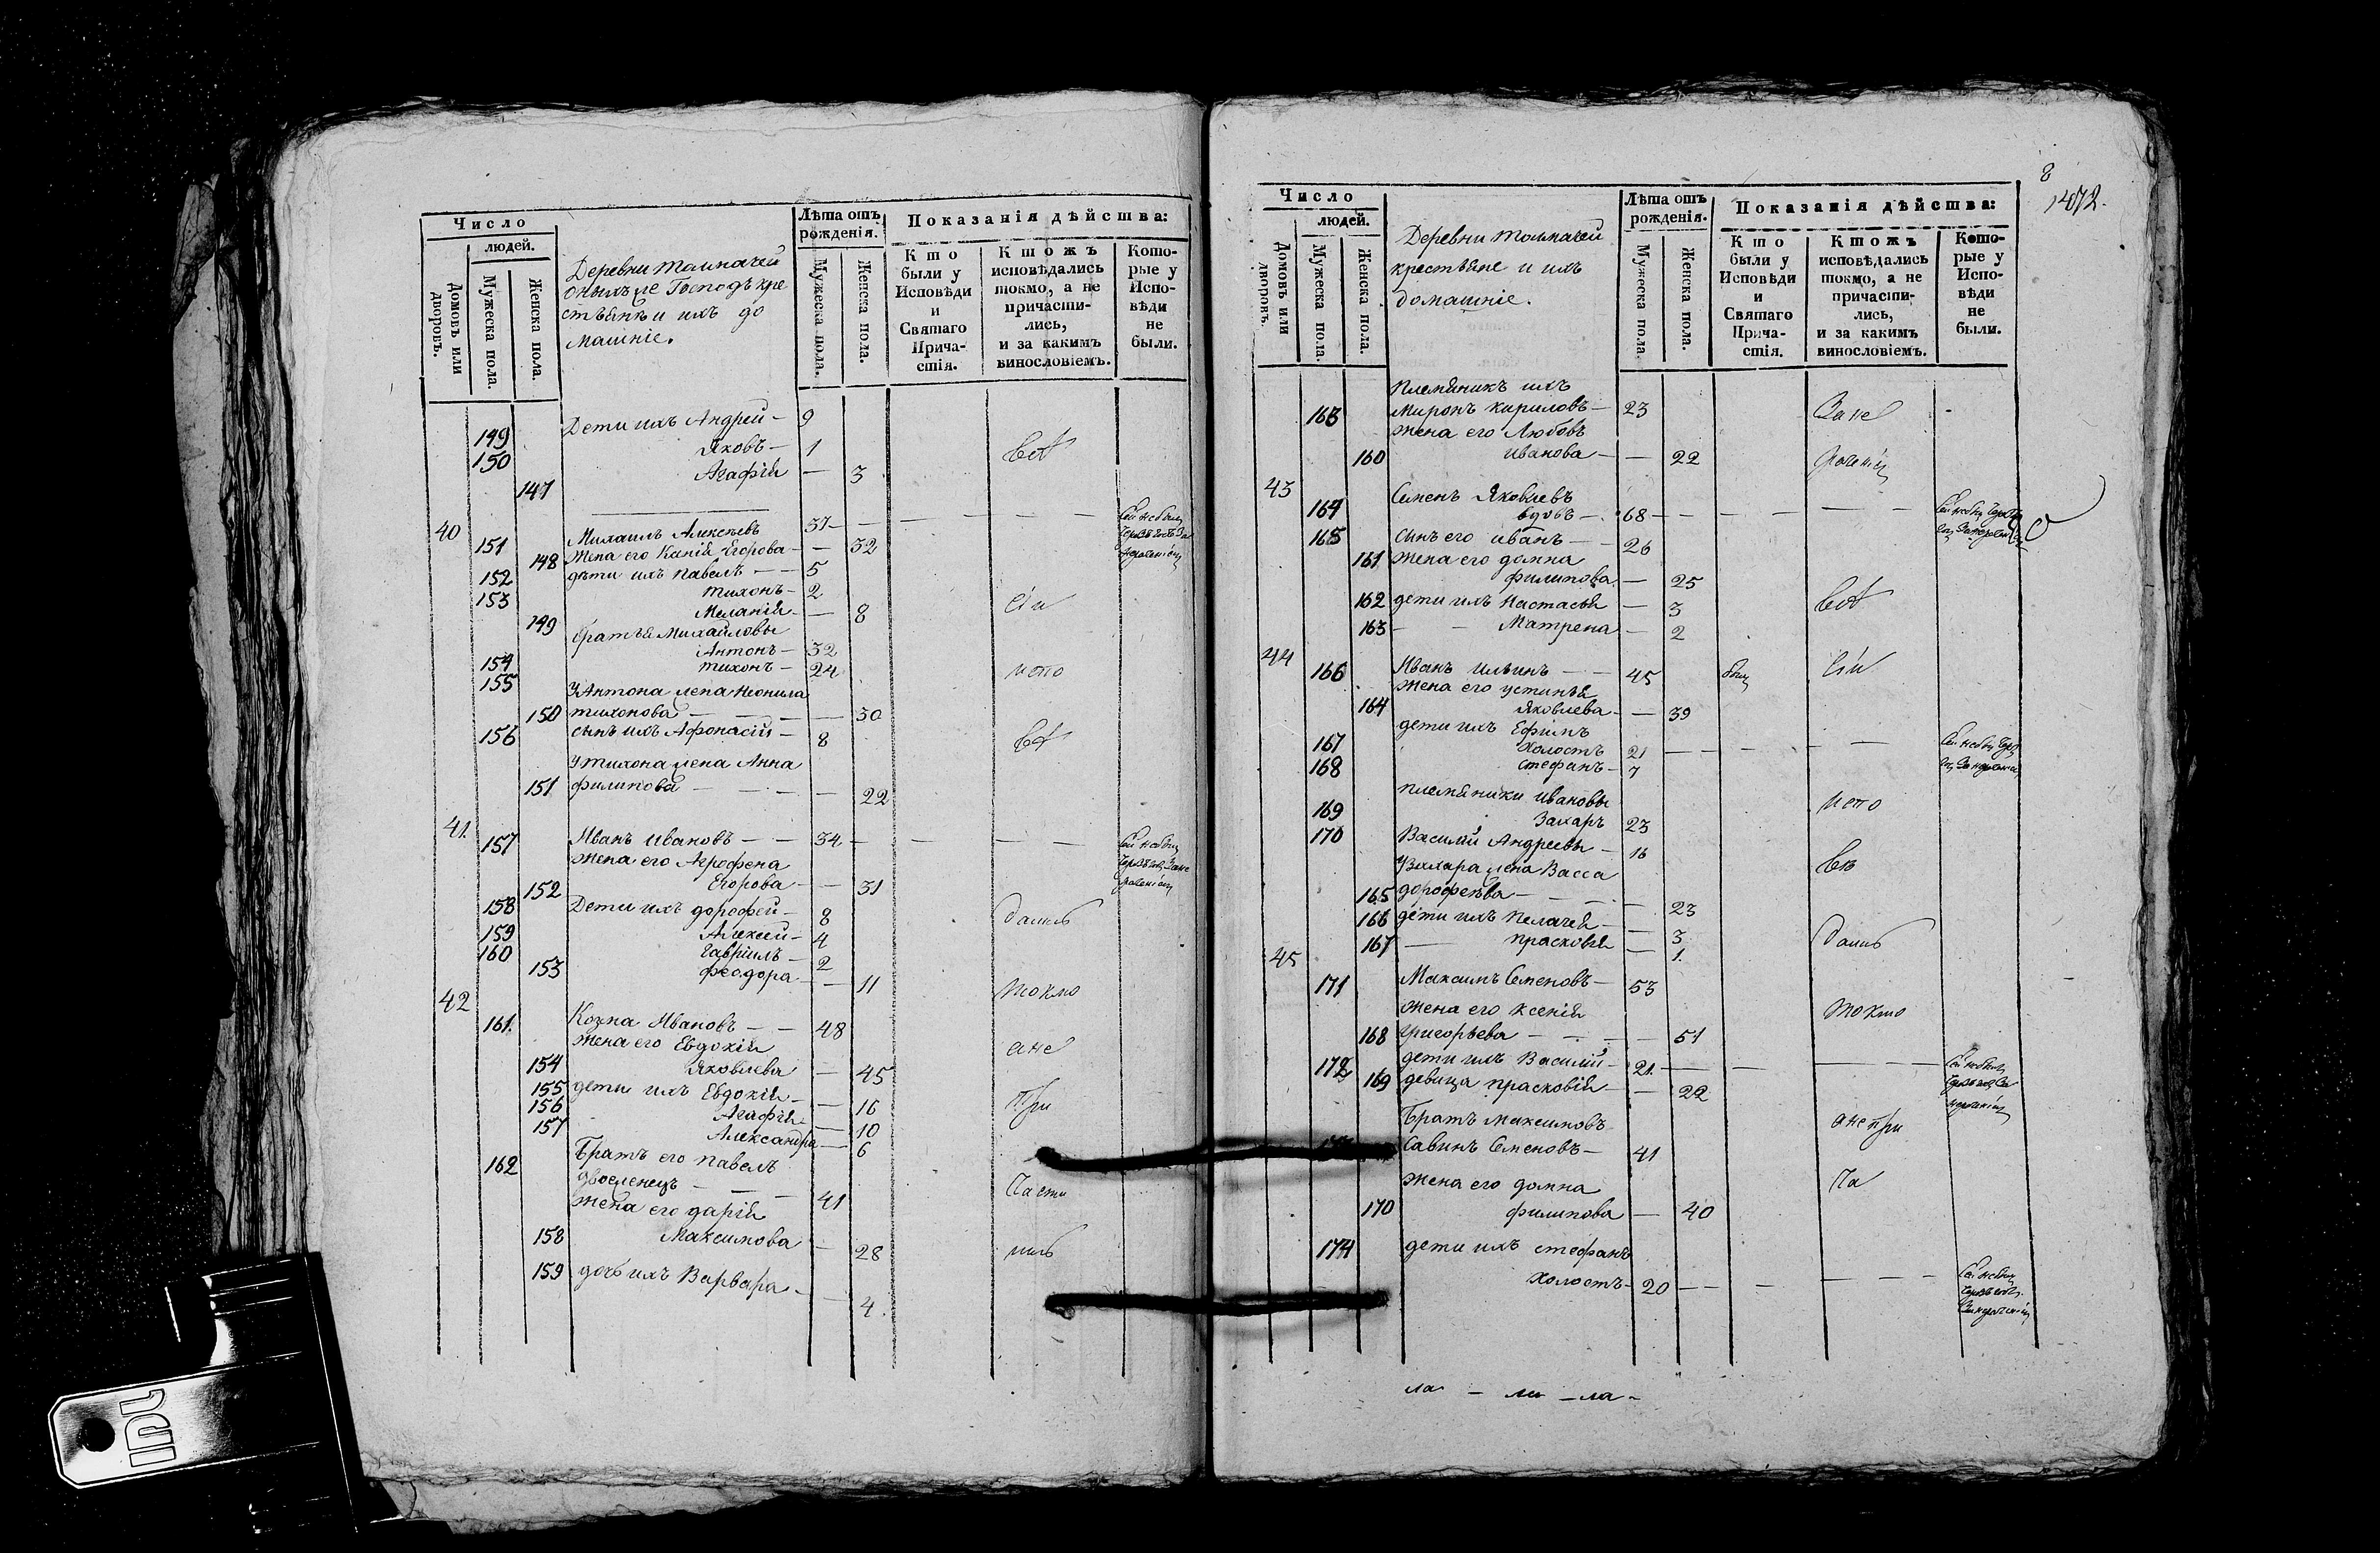 Число
людей.
Домовъ или дворовъ.
Мужеска пола.
Женска пола.
Деревни Толмачей
оныхъ же Господъ кре
стьянъ и ихъ до
машніе.
Лѣта отъ рожденія.
Мужеска пола.
Женска пола.
Показанія дѣйства:
Кто были у Исповѣди и Святаго Прича-стія.
Ктожъ исповѣдались токмо, а не причасти-лись, и за какимъ винословіемъ.
Кото-рые у Испо-вѣди не были.
149 Дети ихъ Андрей — 9
150 Яковъ — 1 всѣ
147 Агафія — 3
40 151 Михаилъ Алексѣевъ 37 — — — — —
148 Жена его Ксенія Егорова — — 32
152 дѣти ихъ Павелъ — — 5
153 Тихонъ — 2
149 Меланія — — 8 сіи
братья Михайловы
154 Антонъ — 32
155 Тихонъ — 24 испо
У Антона жена Неонила
150 тихонова — — — — 30
156 сынъ ихъ Афонасій — 8
У тихона жена Анна
151 филипова — — — — 22
41. 157 Иванъ Ивановъ — — 34 — — — —
жена его Агрофена
152 Егорова — — 31
158 Дети ихъ дорофей — 8 дались
159 Алексей — 4
160 Гавріилъ — 2
153 феодора — — 11 токмо
42 161. Козма Ивановъ — — 48
жена его Евдокія ане
154 Яковлева — 45
155 дети ихъ Евдокія — — 16 при
156 Агафія — 10
157 Александра — 6
162 Братъ его Павелъ
двоеженецъ — — — 41 части
жена его дарія
158 Максимова — 28 лись
159 дочь ихъ Варвара — — 4.
8
1472.
Число
людей.
Домовъ или дворовъ.
Мужеска пола.
Женска пола.
Деревни Толмачей
крестьяне и ихъ
домашніе.
Лѣта отъ рожденія.
Мужеска пола.
Женска пола.
Показанія дѣйства:
Кто были у Исповѣди и Святаго Прича-стія.
Ктожъ исповѣдались токмо, а не причасти-лись, и за какимъ винословіемъ.
Кото-рые у Испо-вѣди не были.
Племяникъ ихъ
163 Миронъ кириловъ — 23 Зане
жена его Любовъ
160 Иванова — — 22
43 Семенъ Яковлевъ
164 вдовъ — 68 — — — — —
165 сынъ его иванъ — — 26
161 жена его домна
филипова — 25
162 дети ихъ Настасья — 3 всѣ
163 — — Матрена — 2
44 166 Иванъ ильинъ — — 45 сіи
жена его устинья
164 Яковлева — — 39
дети ихъ Ефимъ
167 холостъ 21 — — — —
168 стефанъ — 7
племяники ивановы испо
169 Захаръ 23
170 Василій Андреевы — 16
У Захара жена Васса вѣ
165 дорофеѣва — — — 23
166 дети ихъ Пелагея — — 3
167 — прасковья — 1. дались
45 171 Максимъ Семеновъ — 53
жена его ксенія токмо
168 григорьева — — — 51
172 дети ихъ Василій — 21. — — —
169 девица прасковія — — 22
Братъ максимовъ анепри
Савинъ Семеновъ — 41
жена его домна ча
170 филипова — 40
174 дети ихъ стефанъ
холостъ — 20 — — — — —